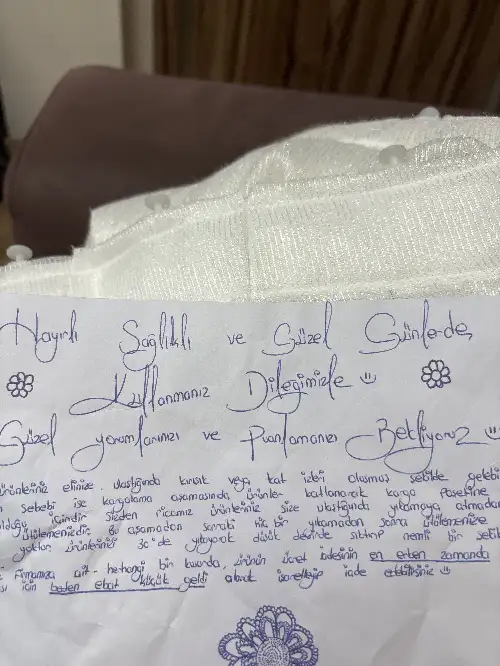 Hayırlı Sağlıklı ve Güzel Günlerde,
Kullanmanız Dileğimizle
Güzel yorumlarınızı ve Puanlamanızı Bekliyoruz
ürünleriniz elinize ulaştığında kırışık veya kat izleri oluşmuş şekilde gelebi
sebebi ise kargolama aşamasında, ürünle katlanarak kargo Posetine
içindir Sizden ricamız ürünleriniz size ulaştığında yıkamaya atmadan
ütülemenizdir. Bu aşamadan sonra hiç bir yıkamadan sonra ütülemenize
yoktur. ürünlerinizi 30°de yıkayarak düşük devirde sıktırıp nemli bir şekil
Firmamıza ait herhangi bir kusurda, ürünün ücret iadesinin en erken zamanda
için beden ebat küçük geldi olarak işaretleyip iade edebilirsiniz